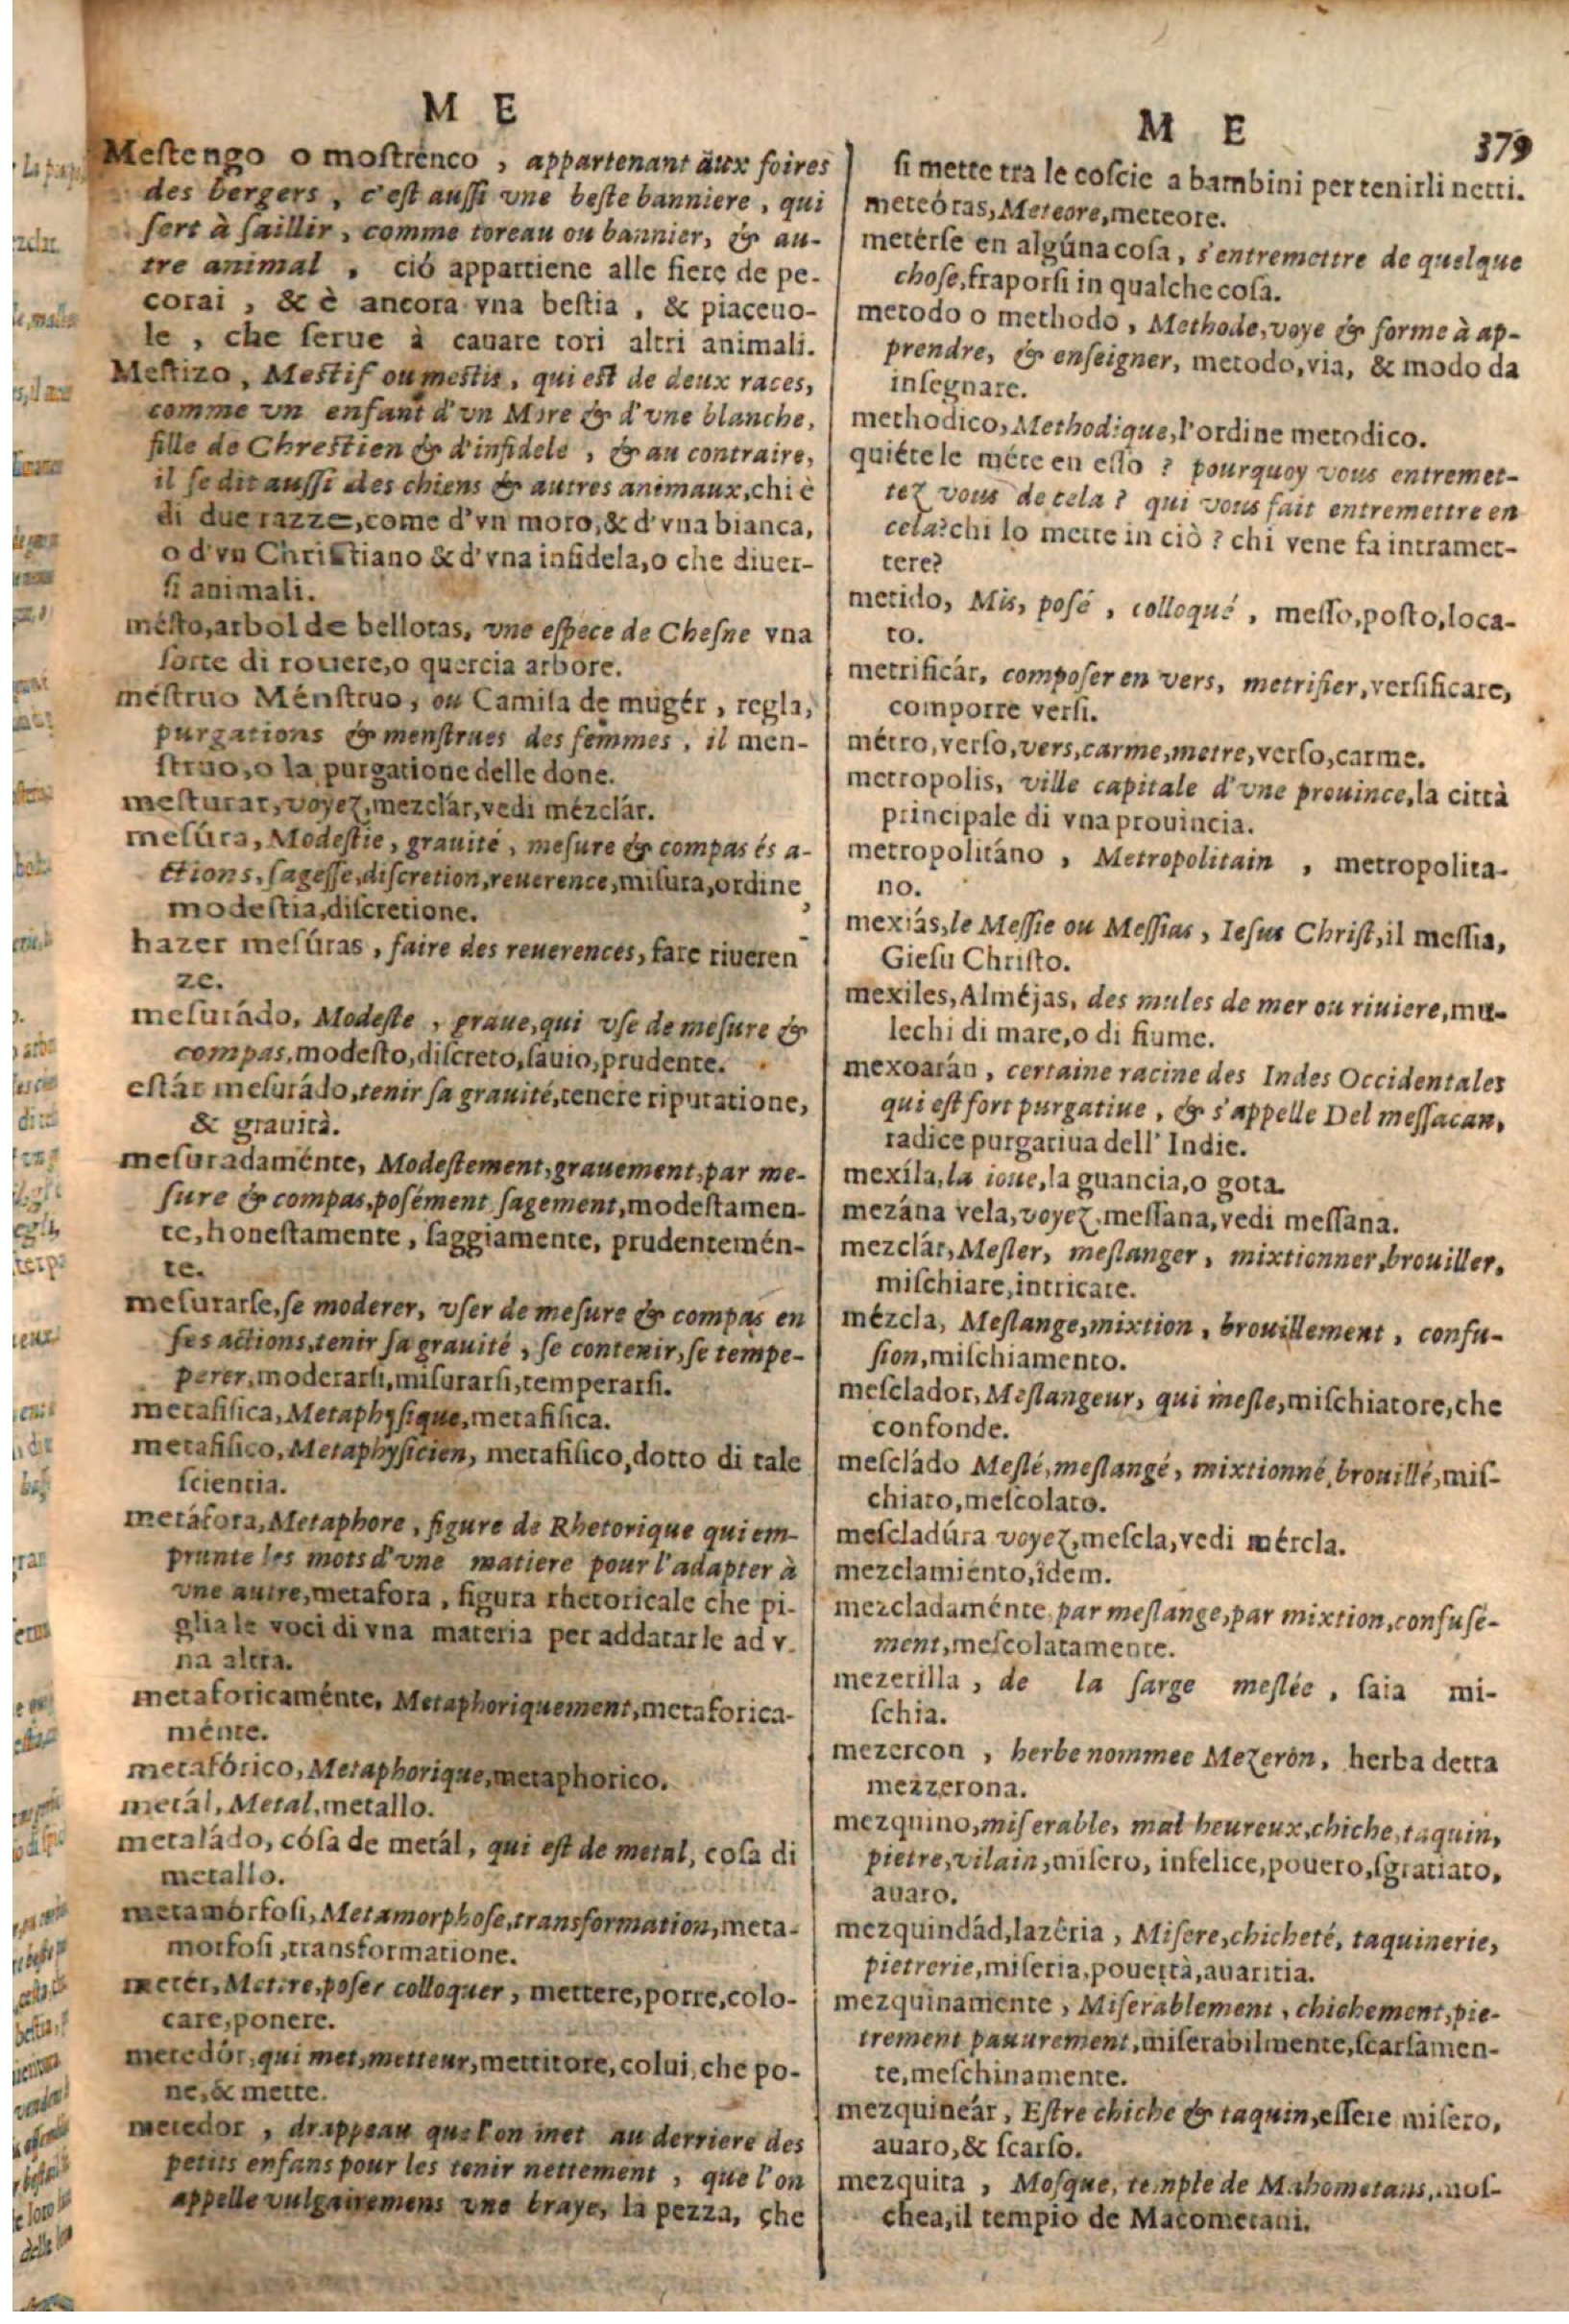 M E
Meſtengo o moſtrénco, appartenant aux foires
des bergers, c'eſt auſſi vne beſte banniere, qui
ſert à ſaillir, comme toreau ou bannier, & au-
tre animal, ció appartiene alle fiere de pe-
corai, & è ancora vna beſtia, & piaceuo-
le, che ſerue à cauare tori altri animali.
Meſtizo, Meſtif ou meſtis, qui eſt de deux races,
comme vn enfant d'vn More & d'vne blanche,
fille de Chreſtien & d'infidele, & au contraire,
il ſe dit auſſi des chiens & autres animaux, chi è
di due razze, come d'vn moro, & d'vna bianca,
o d'vn Chriſtiano & d'vna infidela, o che diuer-
ſi animali.
méſto, arbol de bellotas, vne eſpece de Cheſne vna
ſorte di rouere, o quercia arbore.
méſtruo Ménſtruo, ou Camiſa de mugér, regla,
purgations & menſtrues des femmes, il men-
ſtruo, o la purgatione delle done.
meſturar, voyez, mezclár, vedi mézclár.
meſúra, Modeſtie, grauité, meſure & compas és a-
ctions, ſageſſe, diſcretion, reuerence, miſura, ordine,
modeſtia, diſcretione.
hazer meſúras, faire des reuerences, fare riueren-
ze.
meſurádo, Modeſte, graue, qui vſe de meſure &
compas, modeſto, diſcreto, ſauio, prudente.
eſtár meſurádo, tenir ſa grauité, tenere riputatione,
& grauità.
meſuradaménte, Modeſtement, grauement, par me-
ſure & compas, poſément ſagement, modeſtamen-
te, honeſtamente, ſaggiamente, prudentemén-
te.
meſurarſe, ſe moderer, vſer de meſure & compas en
ſes actions, tenir ſa grauité, ſe contenir, ſe tempe-
perer, moderarſi, miſurarſi, temperarſi.
metafiſica, Metaphyſique, metafiſica.
metafiſico, Metaphyſicien, metafiſico, dotto di tale
ſcientia.
metáfora, Metaphore, figure de Rhetorique qui em-
prunte les mots d'vne matiere pour l'adapter à
vne autre, metafora, figura rhetoricale che pi-
glia le voci di vna materia per addatarle ad v-
na altra.
metaforicaménte, Metaphoriquement, metaforica-
ménte.
metafórico, Metaphorique, metaphorico.
metál, Metal, metallo.
metaládo, cóſa de metál, qui eſt de metal, coſa di
metallo.
metamórfoſi, Metamorphoſe, transformation, meta-
morfoſi, transformatione.
metér, Mettre, poſer colloquer, mettere, porre, colo-
care, ponere.
metedór, qui met, metteur, mettitore, colui, che po-
ne, & mette.
metedor, drappeau que l'on met au derriere des
petits enfans pour les tenir nettement, que l'on
appelle vulgairemens vne braye, la pezza, che
M E
379
ſi mette tra le coſcie a bambini per tenirli netti.
meteóras, Meteore, meteore.
metérſe en algúna coſa, s'entremettre de quelque
choſe, fraporſi in qualche coſa.
metodo o methodo, Methode, voye & forme à ap-
prendre, & enſeigner, metodo, via, & modo da
inſegnare.
methodico, Methodique, l'ordine metodico.
quiéte le méte en eſſo? pourquoy vous entremet-
tez vous de cela? qui vous fait entremettre en
cela? chi lo mette in ciò? chi vene fa intramet-
tere?
metido, Mis, poſé, colloqué, meſſo, poſto, loca-
to.
metrificár, compoſer en vers, metrifier, verſificare,
comporre verſi.
métro, verſo, vers, carme, metre, verſo, carme.
metropolis, ville capitale d'vne prouince, la città
principale di vna prouincia.
metropolitáno, Metropolitain, metropolita-
no.
mexiás, le Meſſie ou Meſſias, Ieſus Chriſt, il meſſia,
Gieſu Chriſto.
mexiles, Alméjas, des mules de mer ou riuiere, mu-
lechi di mare, o di fiume.
mexoarán, certaine racine des Indes Occidentales
qui eſt fort purgatiue, & s'appelle Del meſſacan,
radice purgatiua dell' Indie.
mexíla, la ioue, la guancia, o gota.
mezána vela, voyez, meſſana, vedi meſſana.
mezclár, Meſler, meſlanger, mixtionner, brouiller,
miſchiare, intricare.
mézcla, Meſlange, mixtion, brouillement, confu-
ſion, miſchiamento.
meſclador, Meſlangeur, qui meſle, miſchiatore, che
confonde.
meſcládo Meſlé, meſlangé, mixtionné, brouillé, miſ-
chiato, meſcolato.
meſcladúra voyez, meſcla, vedi mércla.
mezclamiento, îdem.
mezcladaménte, par meſlange, par mixtion, confuſé-
ment, meſcolatamente.
mezerilla, de la ſarge meſlée, ſaia mi-
ſchia.
mezercon, herbe nommee Mezeròn, herba detta
mezzerona.
mezquino, miſerable, mal heureux, chiche, taquin,
pietre, vilain, miſero, infelice, pouero, ſgratiato,
auaro.
mezquindád, lazéria, Miſere, chicheté, taquinerie,
pietrerie, miſeria, pouertà, auaritia.
mezquinamente, Miſerablement, chichement, pie-
trement pauurement, miſerabilmente, ſcarſamen-
te, meſchinamente.
mezquineár, Eſtre chiche & taquin, eſſere miſero,
auaro, & ſcarſo.
mezquita, Moſque, temple de Mahometans, moſ-
chea, il tempio de Macometani.